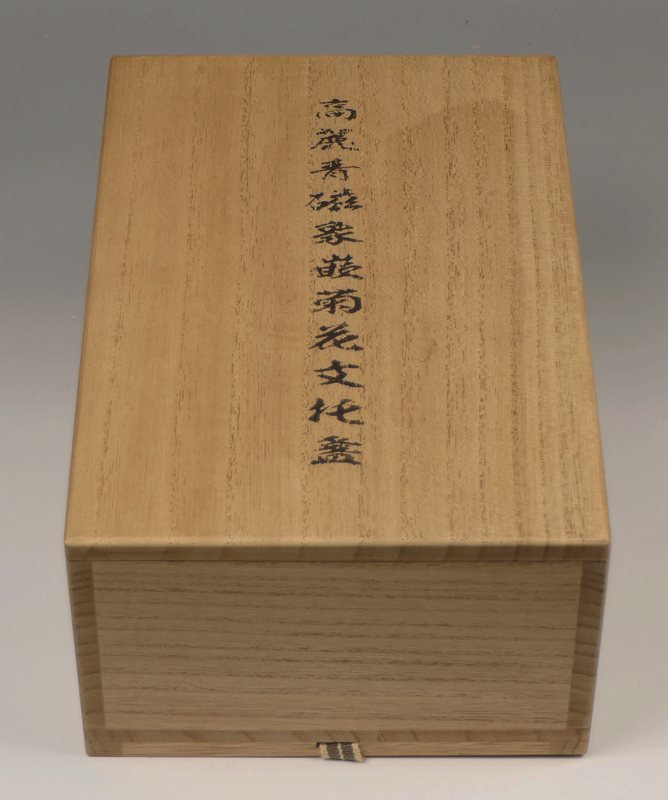 高麗青磁象嵌菊花文托盞